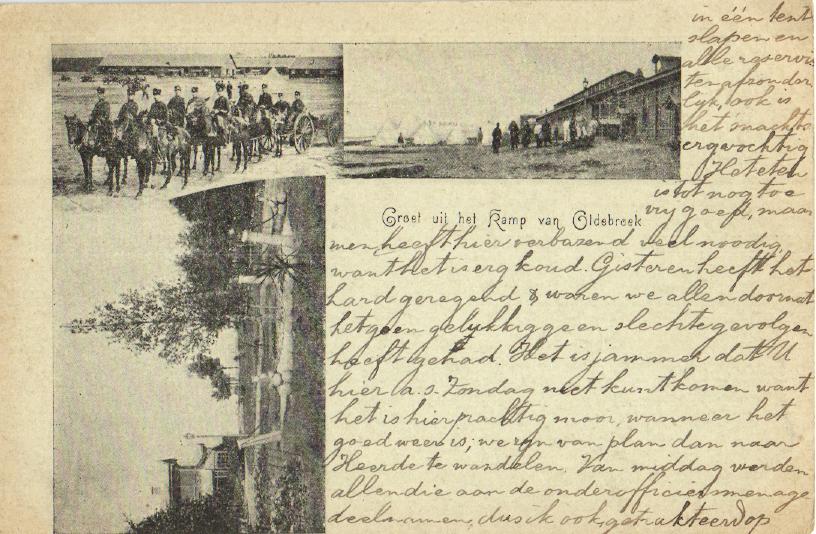 in één tent
slapen en
alle reservis
ten afzonder
lyk, ook is
het 's nachts
erg vochtig
Het eten
is tot nog toe
vry goed, maar
Groet uit het Kamp van Oldebroek
men heeft hier verbazend veel noodig,
want het is erg koud. Gisteren heeft het
hard geregend & waren we allen doornat
hetgeen gelukkig geen slechte gevolgen
heeft gehad. Het is jammer dat U
hier a.s. Zondag niet kunt komen want
het is hier prachtig mooi, wanneer het
goed weer is; we zyn van plan dan naar
Heerde te wandelen. Van middag werden
allen die aan de onderofficiersmenage
deelnamen, dus ik ook, getrakteerd op